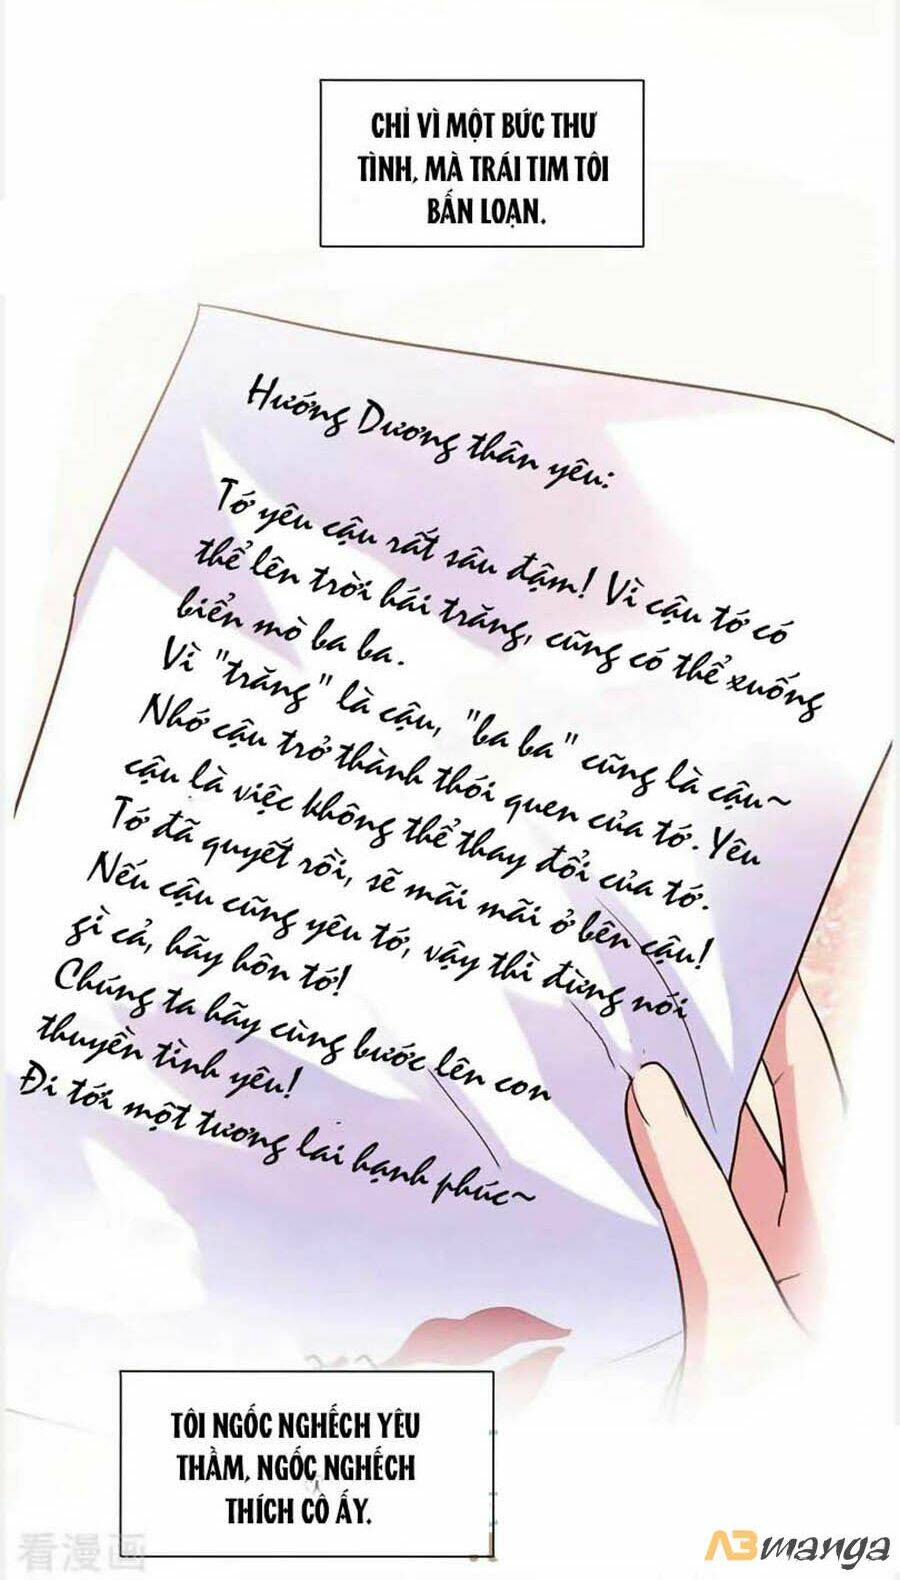 CHỈ VÌ MỘT BỨC THƯ
TÌNH, MÀ TRÁI TIM TÔI
BẤN LOẠN.
Hướng Dương thân yêu:
Tớ yêu cậu rất sâu đậm! Vì cậu tớ có
thể lên trời hái trăng, cũng có thể xuống
biển mò ba ba.
Vì "trăng" là cậu, "ba ba" cũng là cậu~
Nhớ cậu trở thành thói quen của tớ. Yêu
cậu là việc không thể thay đổi của tớ.
Tớ đã quyết rồi, sẽ mãi mãi ở bên cậu!
Nếu cậu cũng yêu tớ, vậy thì đừng nói
gì cả, hãy hôn tớ!
Chúng ta hãy cùng bước lên con
thuyền tình yêu!
Đi tới một tương lai hạnh phúc~
TÔI NGỐC NGHẾCH YÊU
THẦM, NGỐC NGHẾCH
THÍCH CÔ ẤY.
看漫画
A3manga